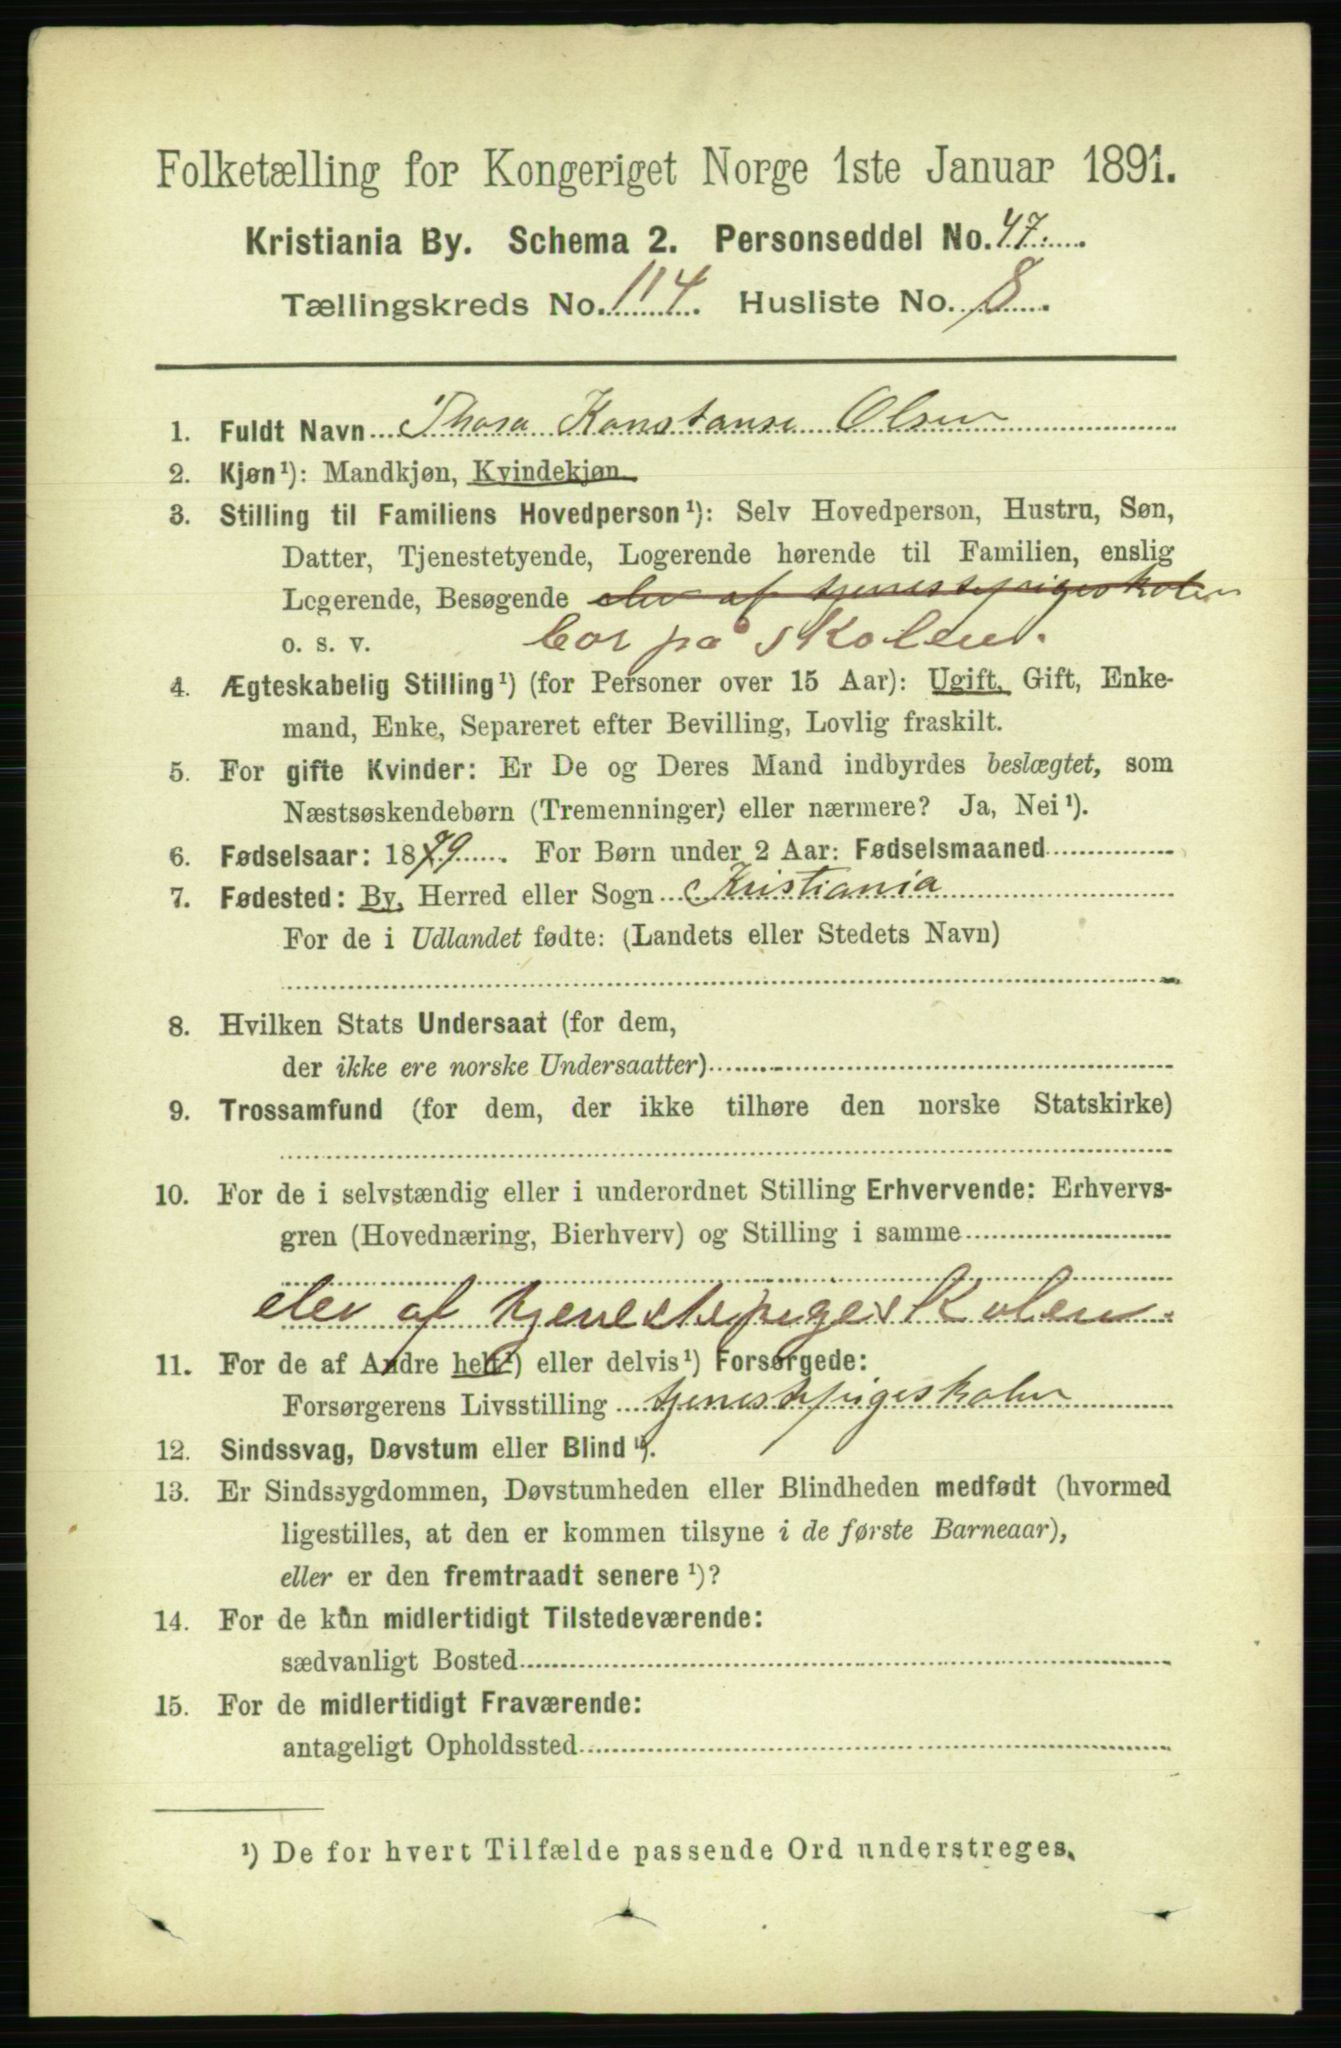 Folketælling for Kongeriget Norge 1ste Januar 1891.
Kristiania By. Schema 2. Personseddel No. 47.
Tællingskreds No. 114. Husliste No. 8.
1. Fuldt Navn Thora Konstanse Olsen
2. Kjøn¹): Mandkjøn, Kvindekjøn
3. Stilling til Familiens Hovedperson¹): Selv Hovedperson, Hustru, Søn,
Datter, Tjenestetyende, Logerende hørende til Familien, enslig
Logerende, Besøgende elev af tjenestepigeskolen
o. s. v. bor på skolen.
4. Ægteskabelig Stilling¹) (for Personer over 15 Aar): Ugift, Gift, Enke-
mand, Enke, Separeret efter Bevilling, Lovlig fraskilt.
5. For gifte Kvinder: Er De og Deres Mand indbyrdes beslægtet, som
Næstsøskendebørn (Tremenninger) eller nærmere? Ja, Nei¹).
6. Fødselsaar: 1879. For Børn under 2 Aar: Fødselsmaaned
7. Fødested: By, Herred eller Sogn Kristiania
For de i Udlandet fødte: (Landets eller Stedets Navn)
8. Hvilken Stats Undersaat (for dem,
der ikke ere norske Undersaatter)
9. Trossamfund (for dem, der ikke tilhøre den norske Statskirke)
10. For de i selvstændig eller i underordnet Stilling Erhvervende: Erhvervs-
gren (Hovednæring, Bierhverv) og Stilling i samme
elev af tjenestepigeskolen.
11. For de af Andre helt¹) eller delvis¹) Forsørgede:
Forsørgerens Livsstilling tjenestepigeskolen
12. Sindssvag, Døvstum eller Blind¹).
13. Er Sindssygdommen, Døvstumheden eller Blindheden medfødt (hvormed
ligestilles, at den er kommen tilsyne i de første Barneaar),
eller er den fremtraadt senere¹)?
14. For de kun midlertidigt Tilstedeværende:
sædvanligt Bosted
15. For de midlertidigt Fraværende:
antageligt Opholdssted
¹) De for hvert Tilfælde passende Ord understreges.